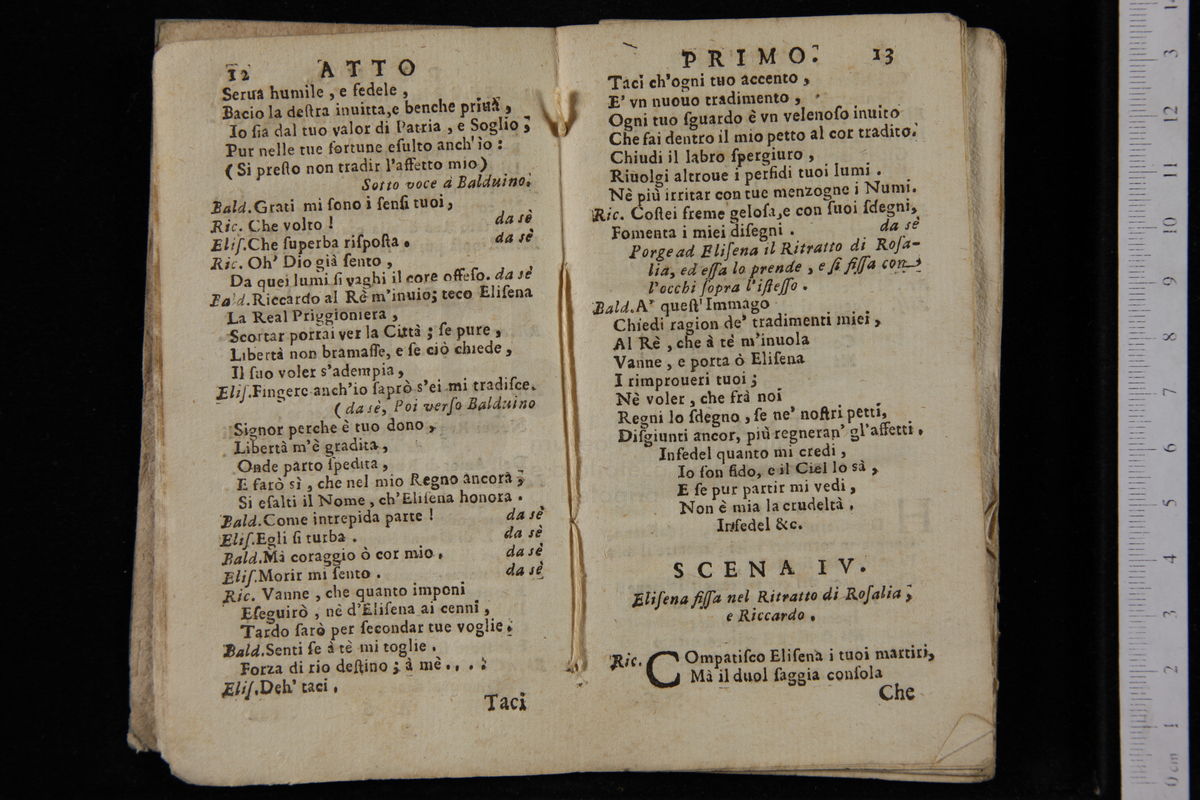 12 ATTO
Serua humile , e fedele ,
Bacio la deſtra inuitta,e benche priuà ,
Io ſia dal tuo valor di Patria , e Soglio ;
Pur nelle tue fortune eſulto anch'io :
( Si preſto non tradir l'affetto mio )
Sotto voce à Balduino.
Bald.Grati mi ſono i ſenſi tuoi ,
Ric. Che volto ! da sè
Eliſ.Che ſuperba riſpoſta . da sè
Ric. Oh' Dio già ſento ,
Da quei lumi ſi vaghi il core offeſo. da sè
Bald.Riccardo al Rè m'inuio; teco Eliſena
La Real Priggioniera ,
Scortar potrai ver la Città ; ſe pure ,
Libertà non bramaſſe, e ſe ciò chiede ,
Il ſuo voler s'adempia ,
Eliſ.Fingere anch'io ſaprò s'ei mi tradiſce.
( da sè, Poi verſo Balduino
Signor perche è tuo dono ,
Libertà m'è gradita ,
Onde parto ſpedita ,
E farò sì , che nel mio Regno ancora ;
Si eſalti il Nome , ch'Eliſena honora .
Bald.Come intrepida parte ! da sè
Eliſ.Egli ſi turba . da sè
Bald.Mà coraggio ò cor mio . da sè
Eliſ.Morir mi ſento . da sè
Ric. Vanne , che quanto imponi
Eſeguirò , nè d'Eliſena ai cenni ,
Tardo ſarò per ſecondar tue voglie .
Bald.Senti ſe à tè mi toglie .
Forza di rio deſtino ; à mè . . . .
Eliſ.Deh' taci .
Taci
PRIMO. 13
Taci ch'ogni tuo accento ,
E' vn nuouo tradimento ,
Ogni tuo ſguardo è vn velenoſo inuito
Che fai dentro il mio petto al cor tradito.
Chiudi il labro ſpergiuro ,
Riuolgi altroue i perfidi tuoi lumi .
Nè più irritar con tue menzogne i Numi.
Ric. Coſtei freme geloſa,e con ſuoi ſdegni,
Fomenta i miei diſegni . da sè
Porge ad Eliſena il Ritratto di Roſa-
lia, ed eſſa lo prende , e ſi fiſſa con
l'occhi ſopra l'iſteſſo .
Bald.A' queſt' Immago
Chiedi ragion de' tradimenti miei ,
Al Rè , che à tè m'inuola
Vanne , e porta ò Eliſena
I rimproueri tuoi ;
Nè voler , che frà noi
Regni lo ſdegno , ſe ne' noſtri petti,
Diſgiunti ancor, più regneran' gl'affetti .
Infedel quanto mi credi ,
Io ſon fido, e il Ciel lo sà ,
E ſe pur partir mi vedi ,
Non è mia la crudeltà .
Infedel &c.
SCENA IV.
Eliſena fiſſa nel Ritratto di Roſalia ;
e Riccardo .
Ric. COmpatiſco Eliſena i tuoi martiri,
Mà il duol ſaggia conſola
Che
0 cm 1 2 3 4 5 6 7 8 9 10 11 12 13 14